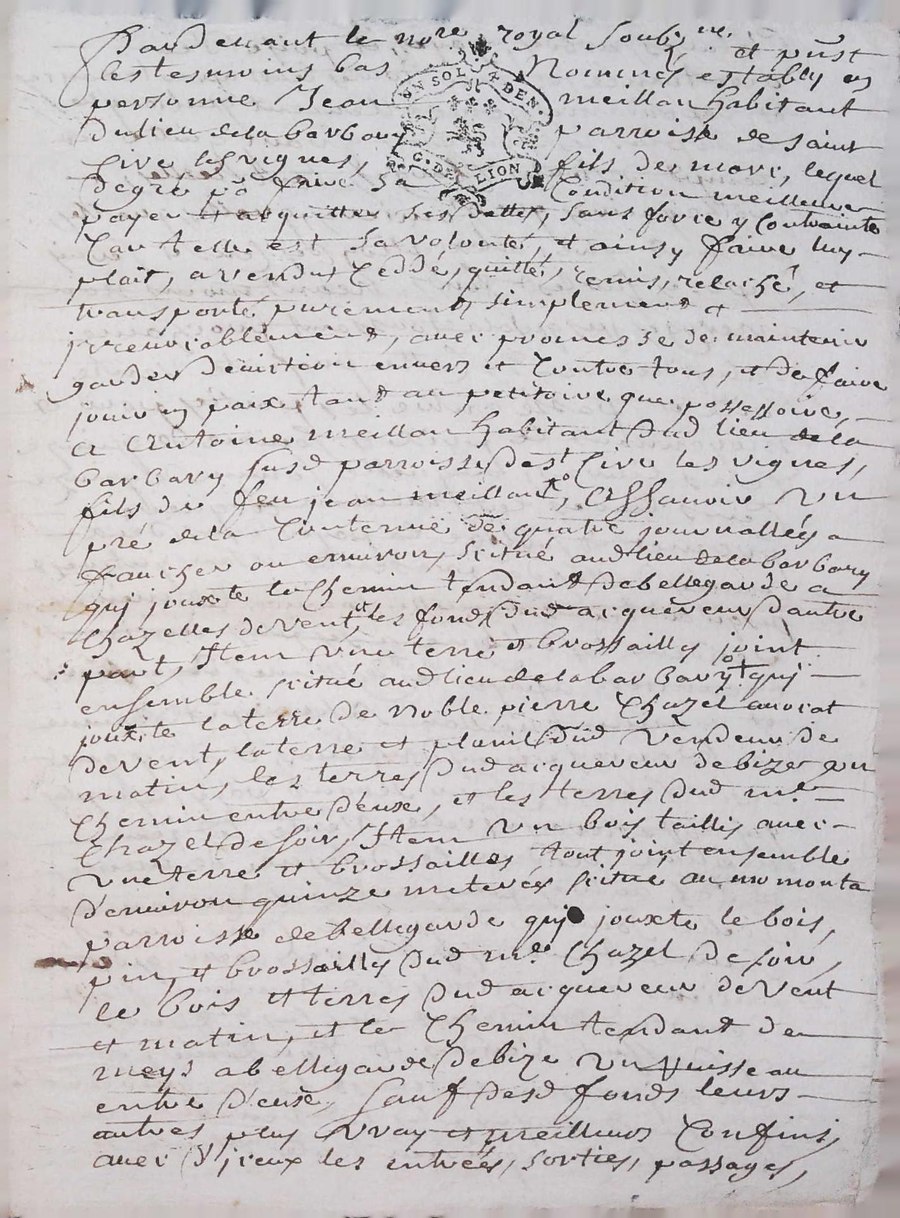 Pardevant le nore royal soubzne, et pñst
les tesmoins bas Nommés establÿ en
personne Jean meillan habitant
du lieu de la barbary parroisse de saint
Cire les vignes, fils de mary, lequel
de gré po faire sa Condition meilleure
payer et acquitter ses dettes, sans force ny Contrainte
Car telle est sa volonté, et ainsy faire luy
plait, a vendu, Ceddé, quitté, remis, relaché, et
transporté purement, simplement et
irrevocablement, avec promesse de maintenir
garder d'eviction envers et Contre tous, et de faire
jouir en paix, tant au petitoire que possessoire,
a Antoine meillan habitant dud lieu de la
barbary susd parroisse de st Cire les vignes,
fils de feu jean meillan, Assavoir un
pré de la Contenue de quatre journallées a
faucher ou environ, scitué aud lieu de la barbary
qui jouxte le Chemin tendant de bellegarde a
Chazelles de vent, et les fonds dud acquereur d'autre
part, Item une terre et brossailly joint
ensemble scitué aud lieu de la barbary qui
jouxte la terre de noble pierre Chazel avocat
de vent, la terre et planil dud vendeur de
matin, les terres dud acquereur de bize un
Chemin entre deux, et les terres dud me
Chazel de soir, Item un bois taillis avec
une terre et brossailles, tout joint ensemble
d'environ quinze meterés scitué au momonta
parroisse de bellegarde qui jouxte le bois,
pin, et brossailly dud me Chazel de soir,
le bois et terres dud acquereur de vent
et matin, et le Chemin tendant de
meys a bellegarde de bize un ruisseau
entre deux, sauf desd fonds leurs
autres plus vray et meilleurs Confins,
avec d'iceux les entrées, sorties, passages,
UN SOL 4 DEN
G. DE LION